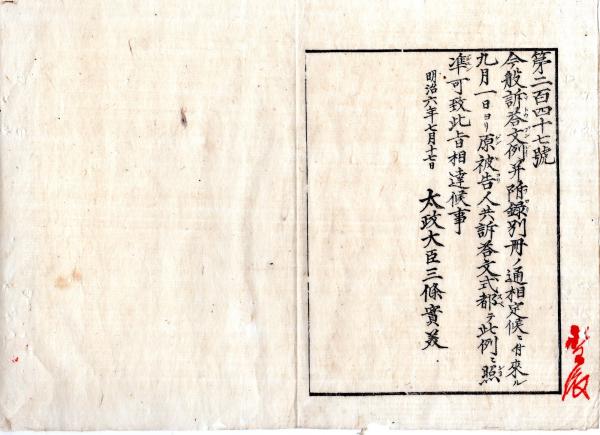 第二百四十七號
今般訴答文例并附録別冊ノ通相定候ニ付來ル
九月一日ヨリ原被告人共訴答文式都テ此例ニ照
準可致此旨相達候事
明治六年七月十七日
太政大臣三條實美